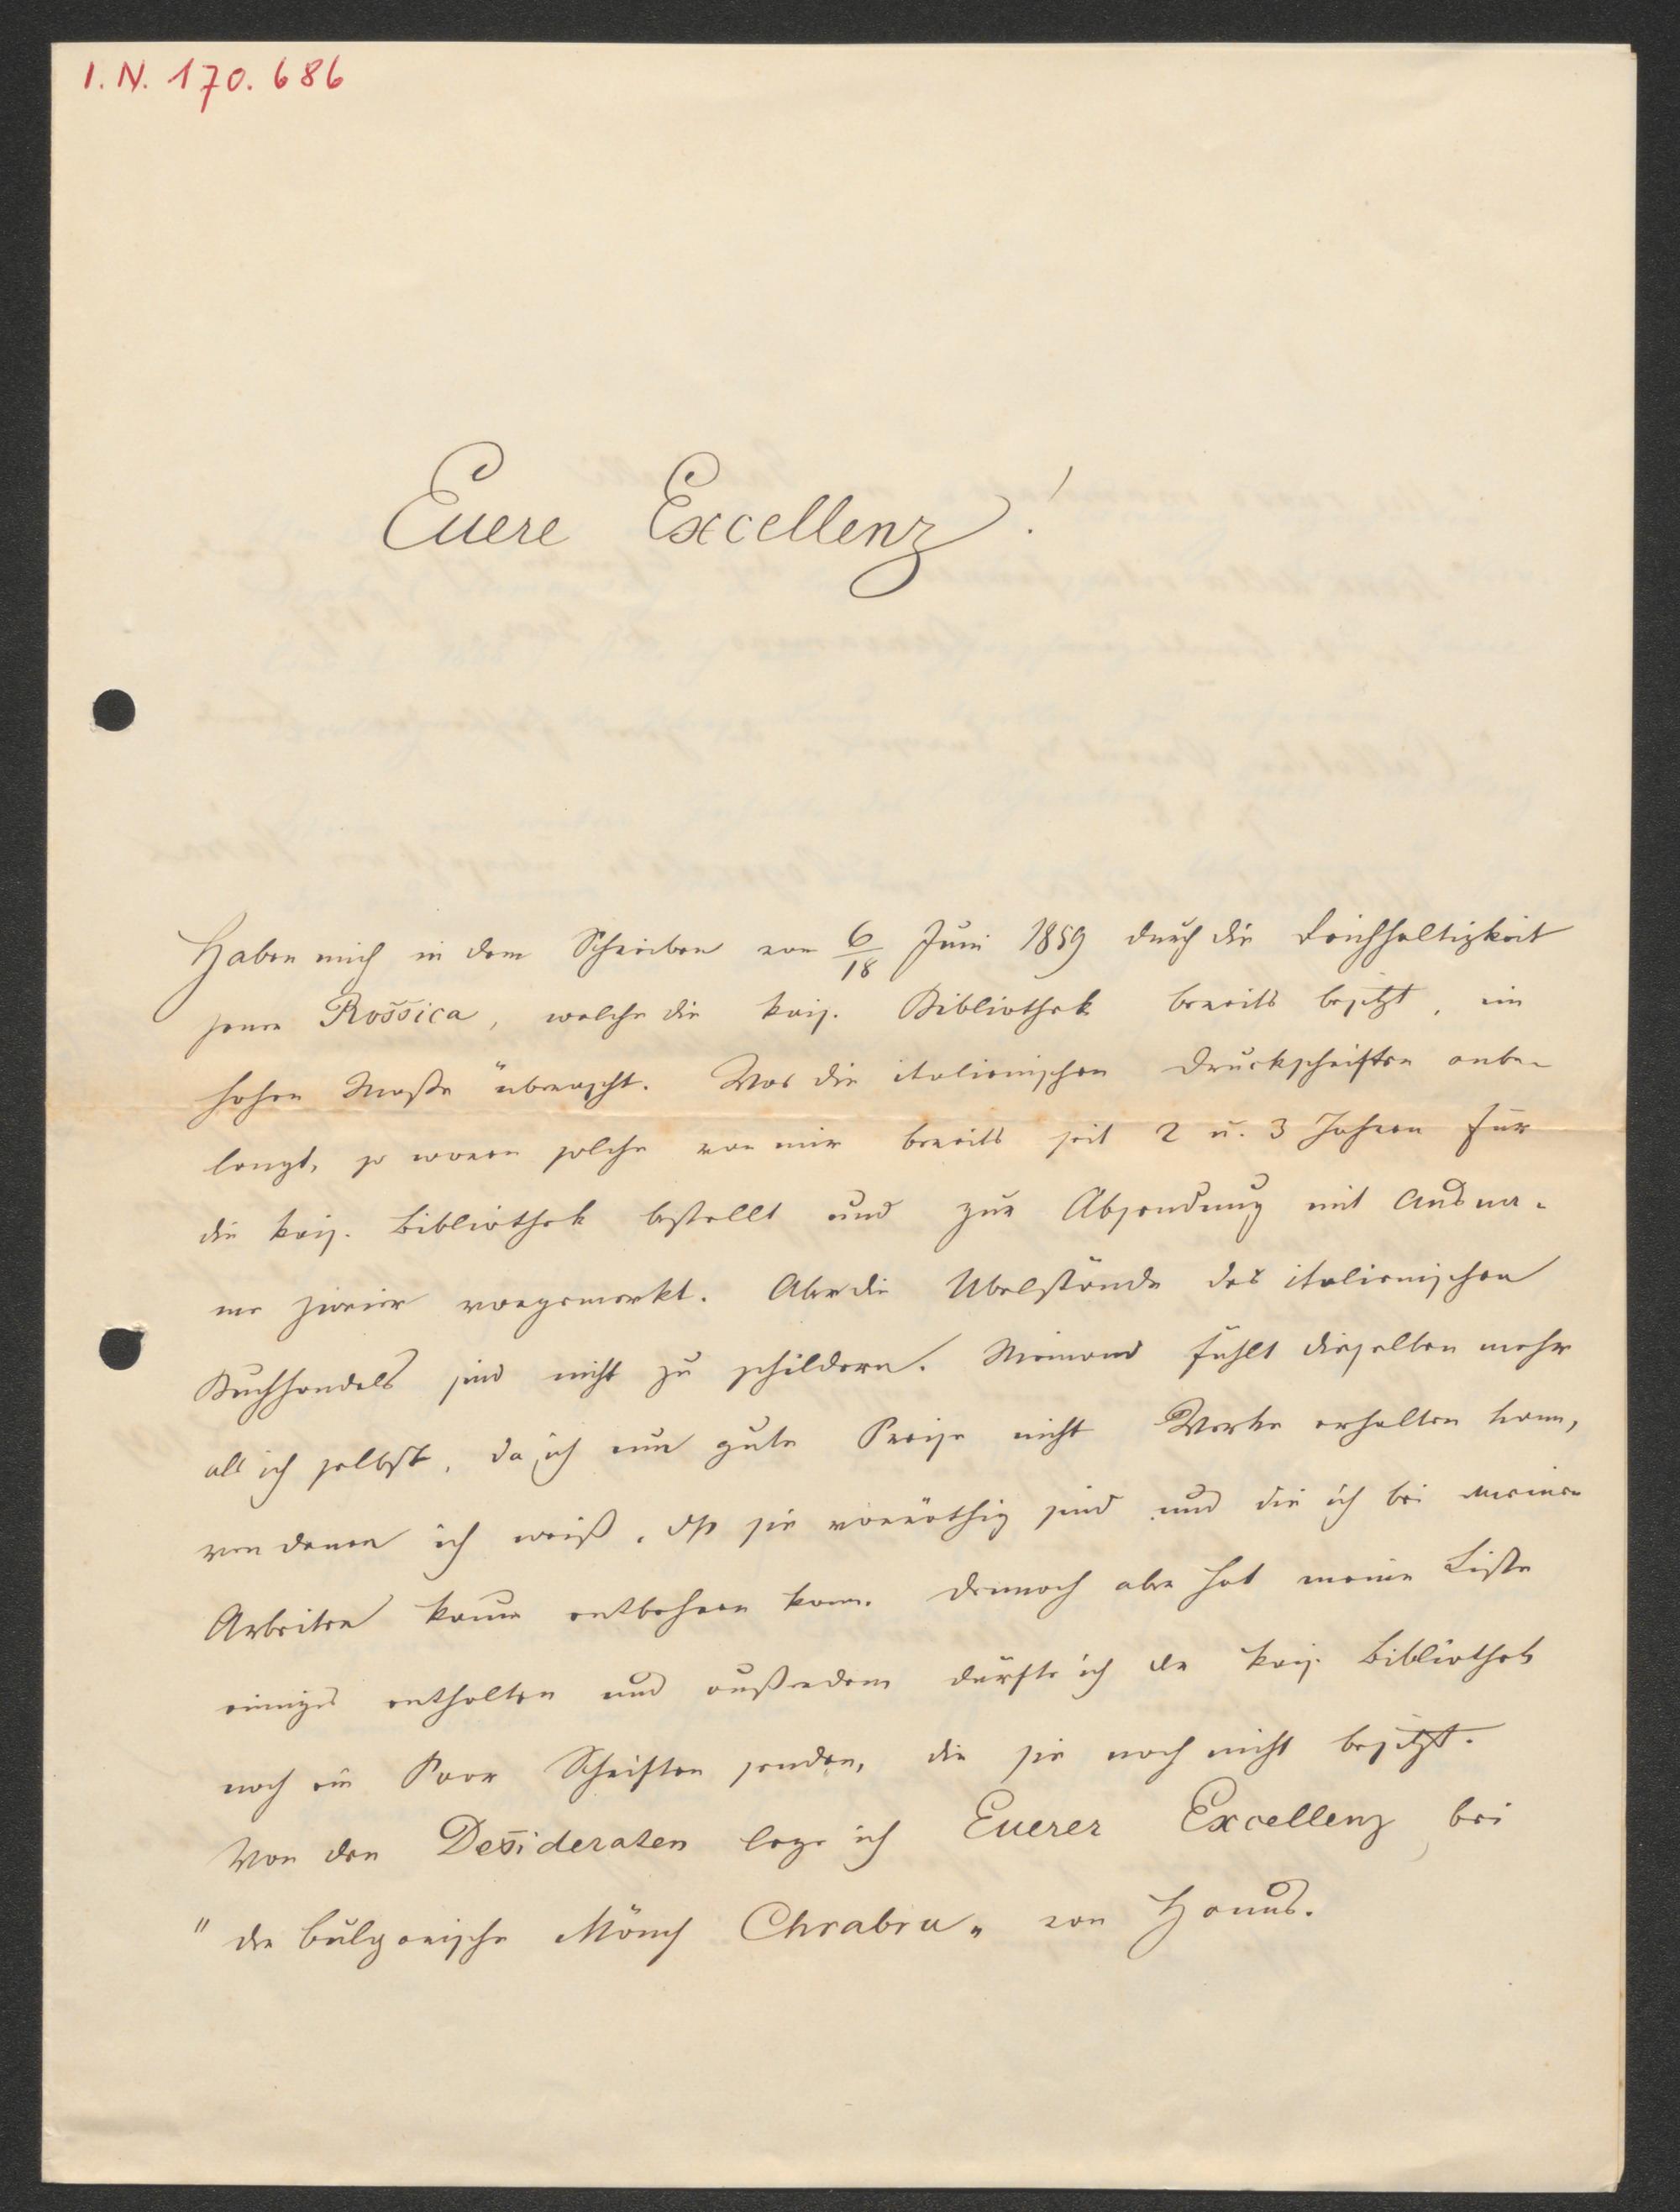 I. N. 170. 686
Euere Excellenz!
Haben mich in dem Schreiben vom 6/18 Juni 1859 durch die Reichhaltigkeit
jener Rossica, welche die kais. Bibliothek bereits besitzt, im
hohen Maße überrascht. Was die italienischen Druckschriften anbe-
langt, so waren solche von mir bereits seit 2 u. 3 Jahren für
die kais. Bibliothek bestellt und zur Absendung mit Ausna-
me zweier vorgemerkt. Aber die Übelstände des italienischen
Buchhandels sind nicht zu schildern. Niemand fühlt dieselben mehr
als ich selbst, da ich um gute Preise nicht Werke erhalten kann,
von denen ich weiß, dß sie vorräthig sind und die ich bei meinen
Arbeiten kaum entbehren kann. Dennoch aber hat meine Liste
einiges enthalten und außerdem dürfte ich der kais. Bibliothek
noch ein Paar Schriften senden, die sie noch nicht besitzt.
Von den Desideraten lege ich Euerer Excellenz bei
"der bulgarische Mönch Chrabru" von Hanuš.